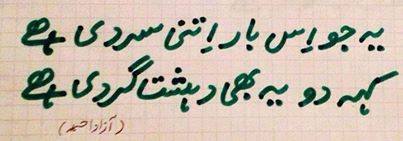 یہ جو اِس بار اِتنی سردی ہے
کہہ دو یہ بھی دہشتگردی ہے
(آزاد احمد)